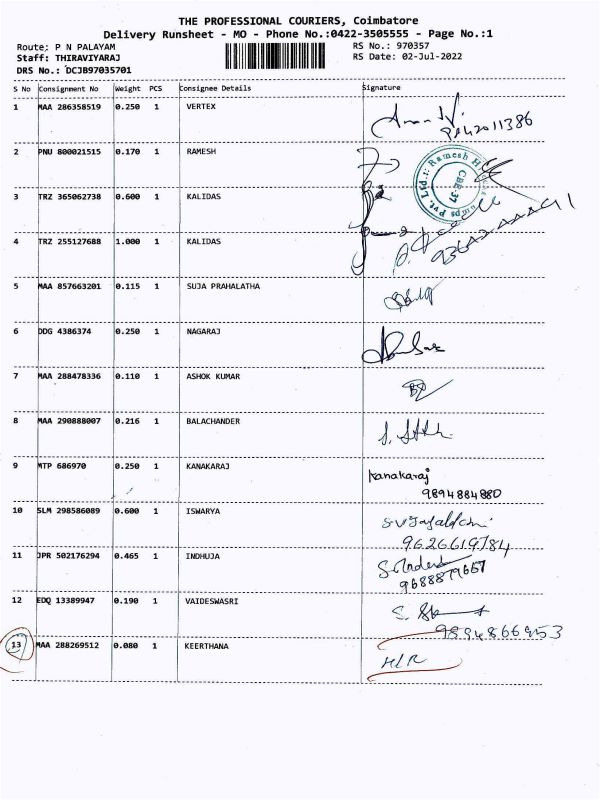 THE PROFESSIONAL COURIERS, Coimbatore
Delivery Runsheet - MO - Phone No.:0422-3505555 - Page No.:1
Route: P N PALAYAM RS No.: 970357
Staff: THIRAVIYARAJ RS Date: 02-Jul-2022
DRS No.: DCJB97035701
S No Consignment No Weight PCS Consignee Details Signature
1 MAA 286358519 0.250 1 VERTEX
9842011386
2 PNU 800021515 0.170 1 RAMESH
Ramesh
Pvt. Ltd.
CBE-37
3 TRZ 365062738 0.600 1 KALIDAS
4 TRZ 255127688 1.000 1 KALIDAS
5 MAA 857663201 0.115 1 SUJA PRAHALATHA
6 DDG 4386374 0.250 1 NAGARAJ
7 MAA 288478336 0.110 1 ASHOK KUMAR
8 MAA 290888007 0.216 1 BALACHANDER
9 MTP 686970 0.250 1 KANAKARAJ Kanakaraj
9894884880
10 SLM 298586089 0.600 1 ISWARYA
9626619784
11 JPR 502176294 0.465 1 INDHUJA
9688879667
12 EDQ 13389947 0.190 1 VAIDESWASRI
9894866953
13 MAA 288269512 0.080 1 KEERTHANA H/R